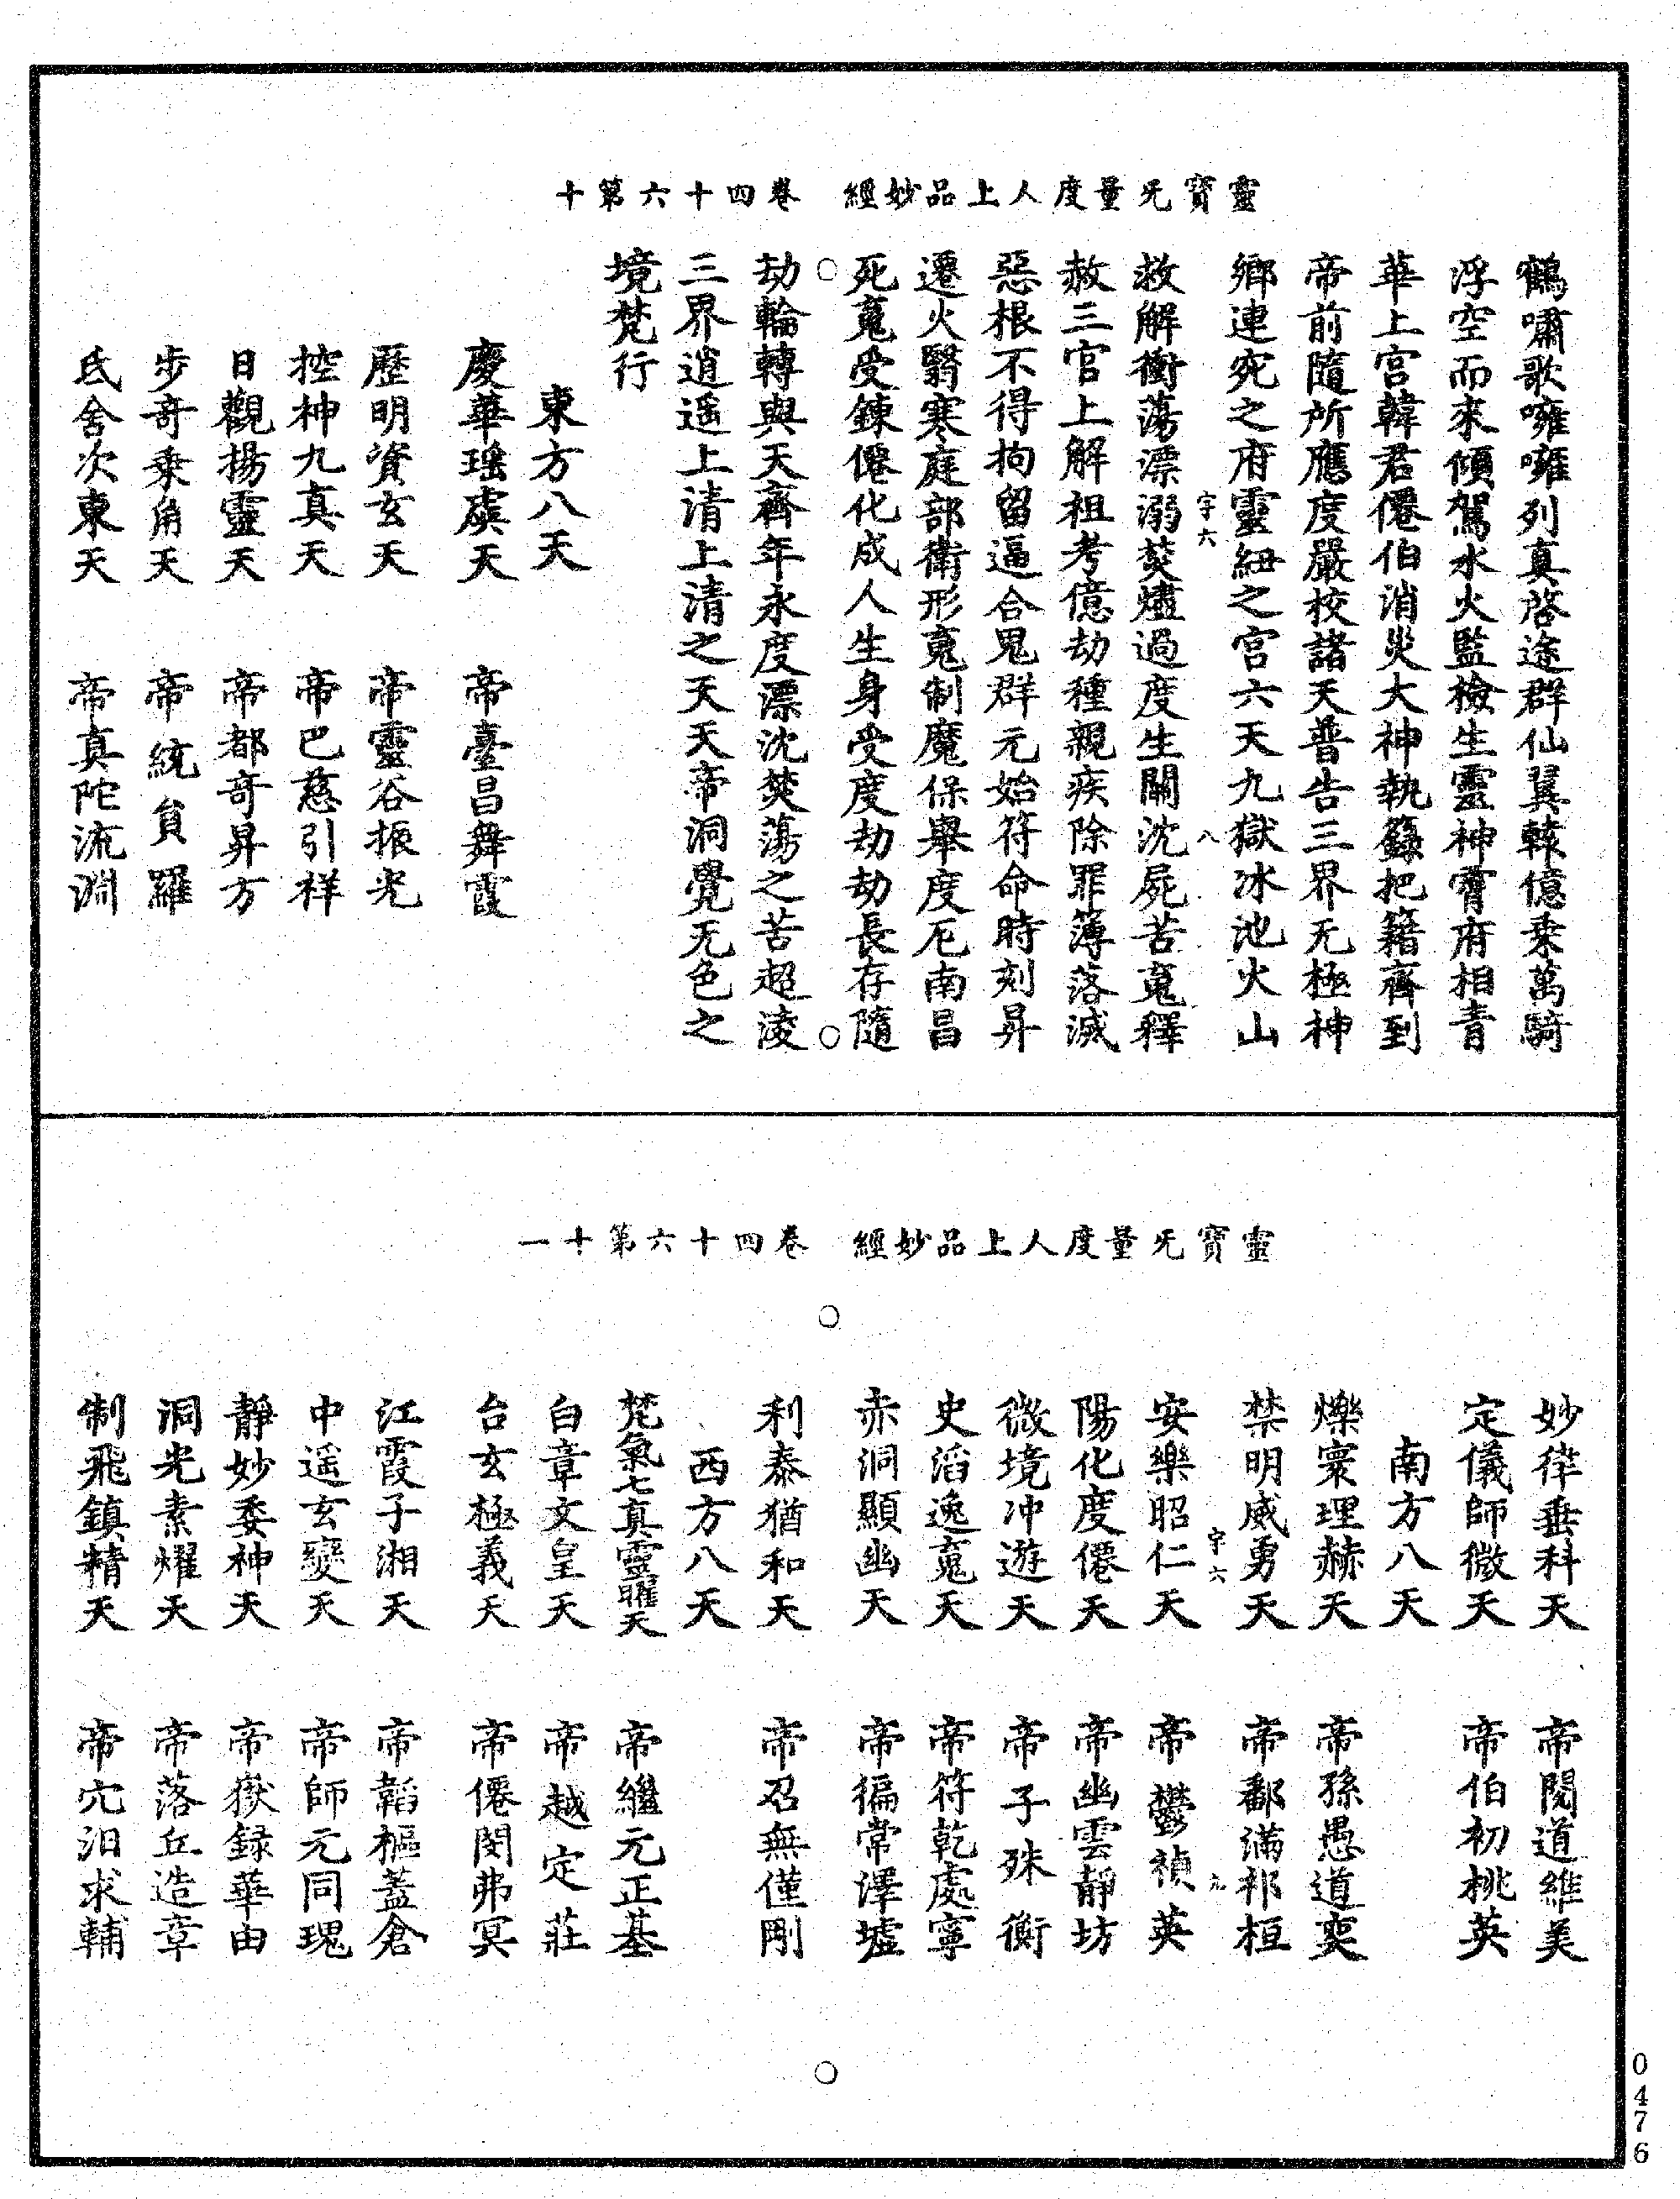 靈寶旡量度人上品妙經　卷四十六第十
鶴嘯歌嗈嗈列真啓途群仙翼轅億乗萬騎
浮空而來傾駕水火監檢生靈神霄府相青
華上宮韓君僊伯消災大神執籙把籍齊到
帝前隨所應度嚴校諸天普告三界无極神
鄉連宛之府靈紐之宮六天九獄冰池火山
宇六　八
救解衝蕩漂溺焚燼過度生關沈屍苦䰟釋
赦三官上解祖考億劫種親疾除罪簿落滅
惡根不得拘留逼合鬼群元始符命時刻昇
遷火翳寒庭部衛形䰟制魔保舉度厄南昌
死䰟受鍊僊化成人生身受度劫劫長存隨
劫輪轉與天齊年永度漂沈焚蕩之苦超淩
三界逍遥上清上清之天天帝洞覺无色之
境梵行
東方八天
慶華瑶虡天　帝臺昌舞霞
歷明資玄天　帝靈谷振光
控神九真天　帝巴慈引祥
日觀揚靈天　帝都奇昇方
步奇乗角天　帝統負羅
氐舍次東天　帝真陀流淵
靈寶旡量度人上品妙經　卷四十六第十一
妙律垂科天　帝閱道維美
定儀師微天　帝伯初桃英
南方八天
爍寰理赫天　帝孫愚道奭
禁明威勇天　帝鄱滿祁桓
宇六　九
安樂昭仁天　帝鬱禎英
陽化度僊天　帝幽雲靜坊
微境冲遊天　帝子殊衡
史滔逸䰟天　帝符乾處寧
赤洞顯幽天　帝徧常澤墟
利泰猶和天　帝召無僅剛
西方八天
梵氣七真靈曜天　帝繼元正基
白章文皇天　帝越定莊
台玄極義天　帝僊閔弗冥
江霞子湘天　帝韜樞蓋倉
中遥玄變天　帝師元同瑰
靜妙委神天　帝嶽録華由
洞光素耀天　帝落丘造章
制飛鎮精天　帝宂汨求輔
0476